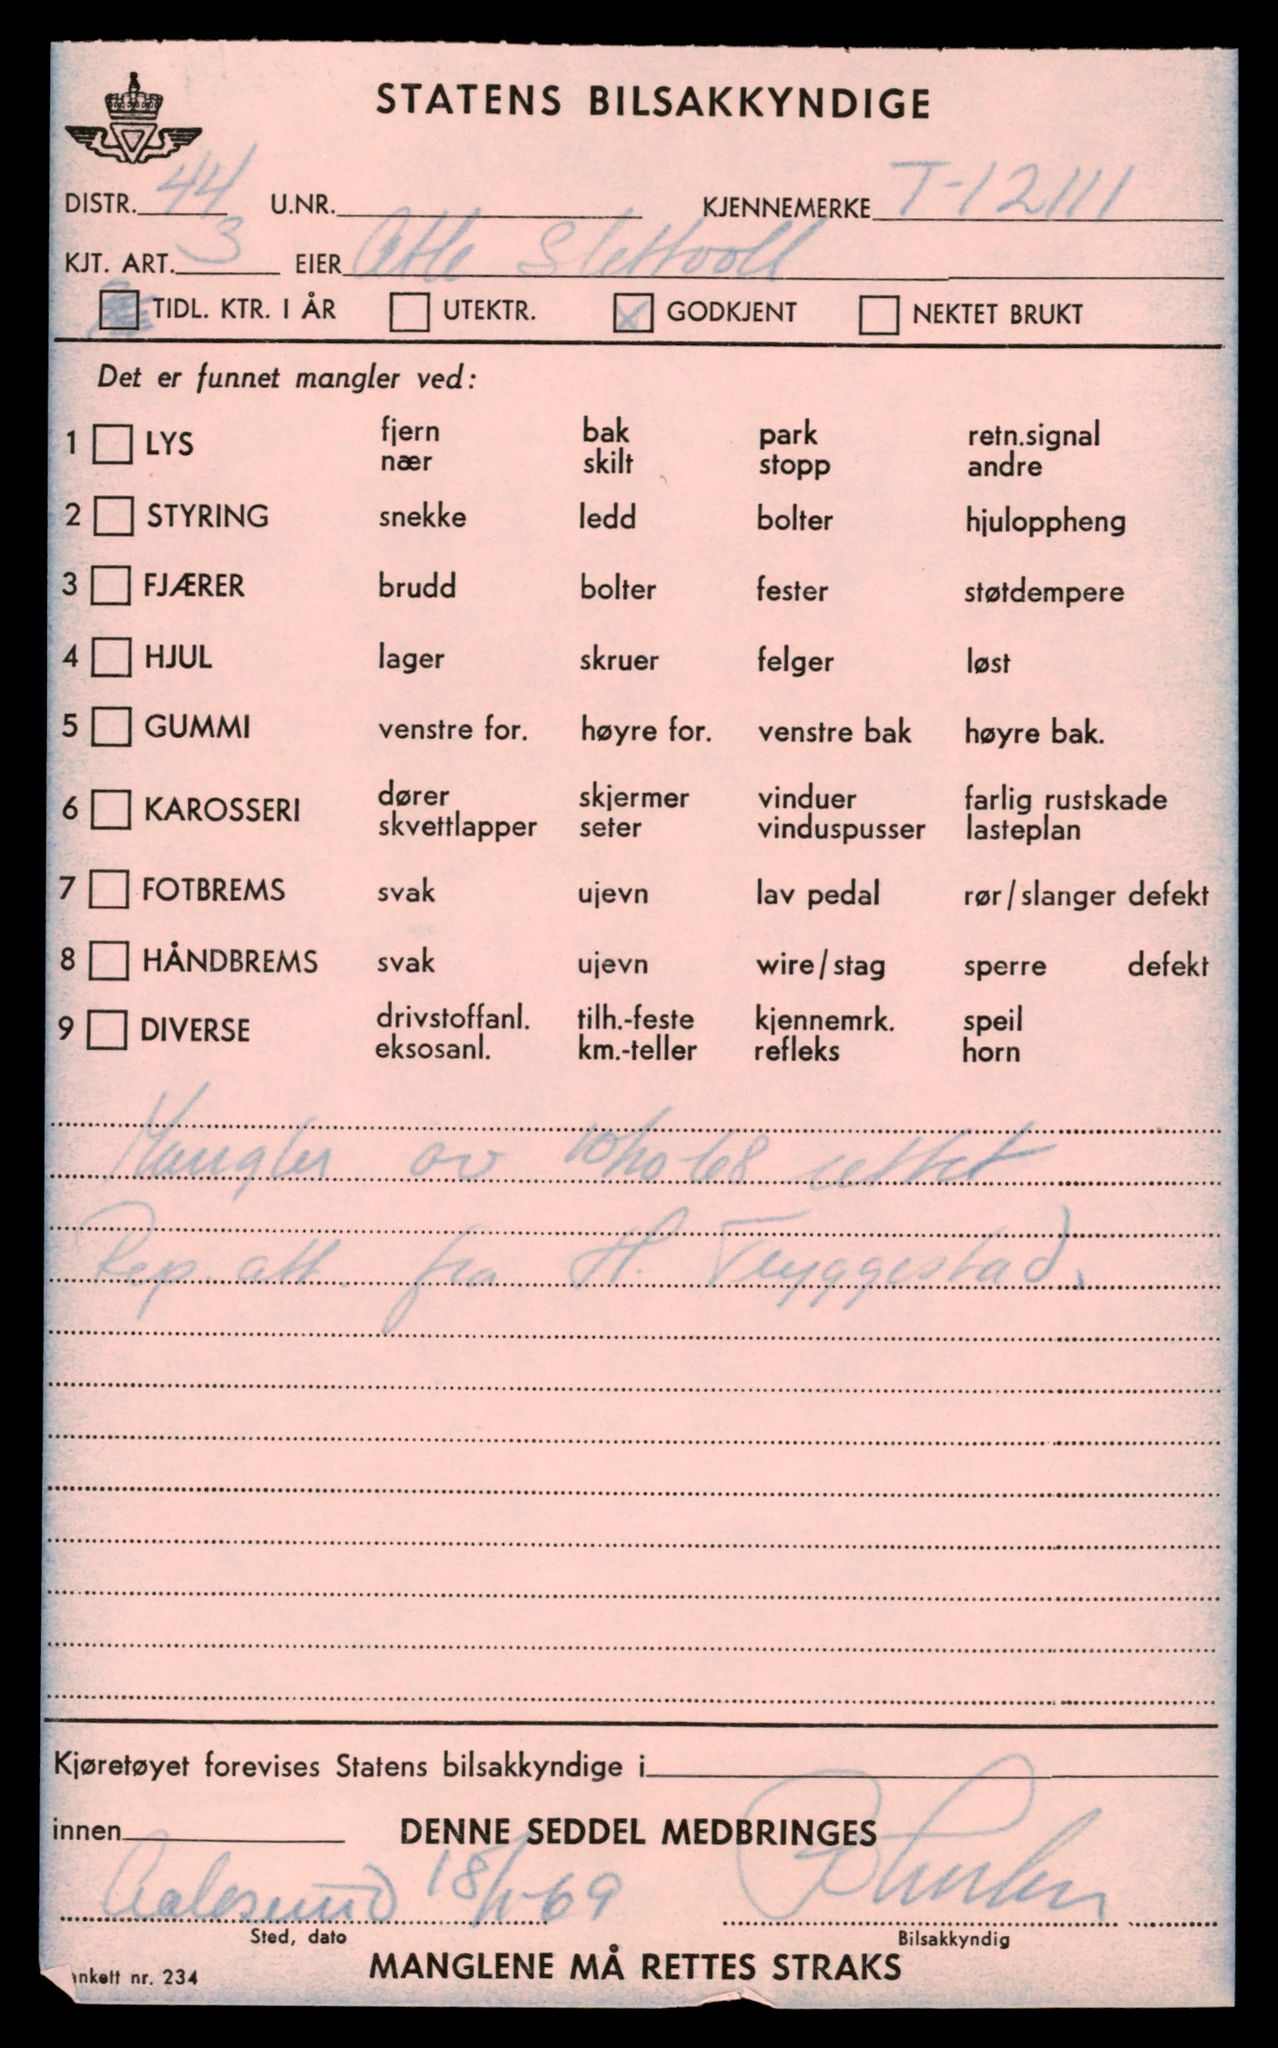 STATENS BILSAKKYNDIGE
DISTR. 44 U.NR. KJENNEMERKE T-12111
KJT. ART. 3 EIER Atle Slettvoll
TIDL. KTR. I ÅR UTEKTR. GODKJENT NEKTET BRUKT
Det er funnet mangler ved:
1 LYS fjern bak park retn.signal
nær skilt stopp andre
2 STYRING snekke ledd bolter hjuloppheng
3 FJÆRER brudd bolter fester støtdempere
4 HJUL lager skruer felger løst
5 GUMMI venstre for. høyre for. venstre bak høyre bak.
6 KAROSSERI dører skjermer vinduer farlig rustskade
skvettlapper seter vinduspusser lasteplan
7 FOTBREMS svak ujevn lav pedal rør/slanger defekt
8 HÅNDBREMS svak ujevn wire/stag sperre defekt
9 DIVERSE drivstoffanl. tilh.-feste kjennemrk. speil
eksosanl. km.-teller refleks horn
Mangler av rettet
Rep. att. fra H. Tryggestad.
Kjøretøyet forevises Statens bilsakkyndige i
innen DENNE SEDDEL MEDBRINGES
Aalesund 18/1-69
Sted, dato Bilsakkyndig
nkett nr. 234 MANGLENE MÅ RETTES STRAKS